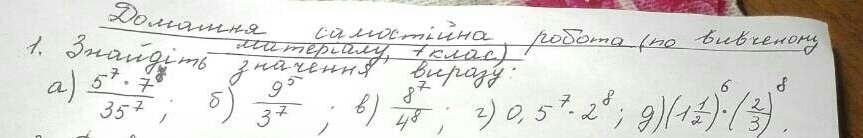 Домашня самостійна робота (по вивченому
матеріалу, 7 клас)
1. Знайдіть значення виразу:
а) 5⁷·7⁸/35⁷; б) 9⁵/3⁷; в) 8⁷/4⁸; г) 0,5⁷·2⁸; д) (1 1/2)⁶·(2/3)⁸.